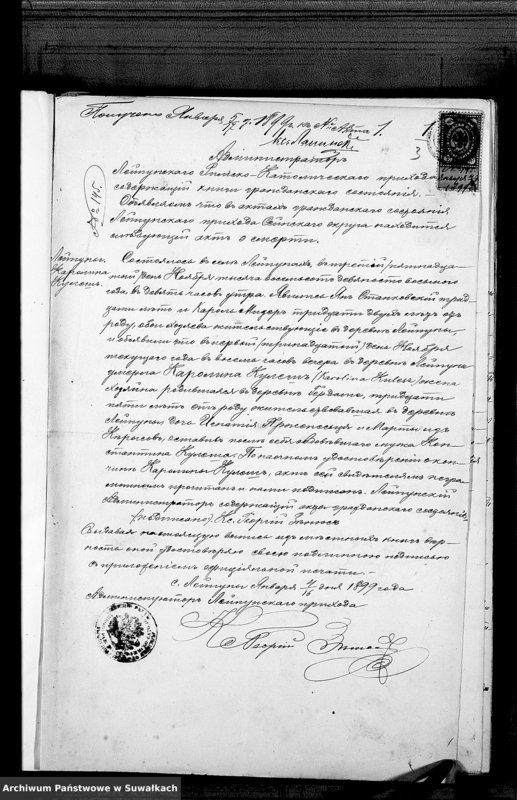 Получено Января 5/17 д. 1899 г. к № Акта 1.
Администраторъ
Лейпунскаго Римско-Католическаго прихода
содержащій книги гражданскаго состоянія. –
Объявляетъ что въ актахъ гражданскаго состоянія
Лейпунскаго прихода Сейнскаго округа находится
слѣдующій актъ о смерти.
№ 145.
Лейпуны.
Каролина
Состоялось въ селѣ Лейпунахъ, въ третій /пятнадца-
тый/ день Ноября тысяча восемьсотъ девяносто восьмого
года, въ девять часовъ утра. Явились Янъ Станковскій трид-
цати лѣтъ и Кароль тридцати двухъ лѣтъ отъ
роду, оба хозяева жительствующіе въ деревнѣ Лейпуны,
и объявили что въ первый /тринадцатый/ день Ноября
текущаго года въ восемь часовъ вечера въ деревнѣ Лейпуны
умерла Каролина /Karolina / жена
хозяина родившаяся въ деревнѣ тридцати
пяти лѣтъ отъ роду жительствовавшая въ деревнѣ
Лейпуны, дочь Игнатія и Марты изъ
оставивъ послѣ себя овдовѣвшаго мужа Кон-
стантина По наочномъ удостовѣреніи о кон-
чинѣ Каролины актъ сей свидѣтелямъ негра-
мотнымъ прочитанъ и нами подписанъ. Лейпунскій
Администраторъ содержащій акты гражданскаго состоянія
(подписано) Кс. Георгій
Выдавая настоящую выпись изъ мѣстныхъ книгъ вѣр-
ность оной удостовѣряю своею подлинною подписью
съ приложеніемъ оффиціальной печати. –
с. Лейпуны Января 4/16 дня 1899 года
Администраторъ Лейпунскаго прихода
Кс Георгій
1
Archiwum Państwowe w Suwałkach